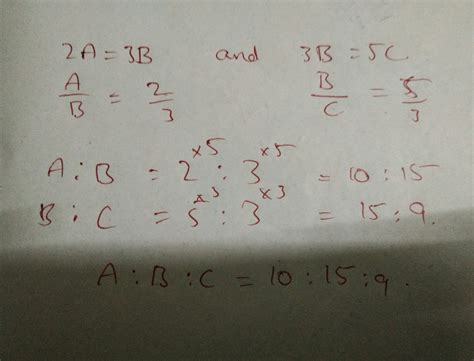 2A = 3B and 3B = 5C
A/B = 2/3 B/C = 5/3
A : B = 2^×5 : 3^×5 = 10 : 15
B : C = 5^×3 : 3^×3 = 15 : 9.
A : B : C = 10 : 15 : 9.